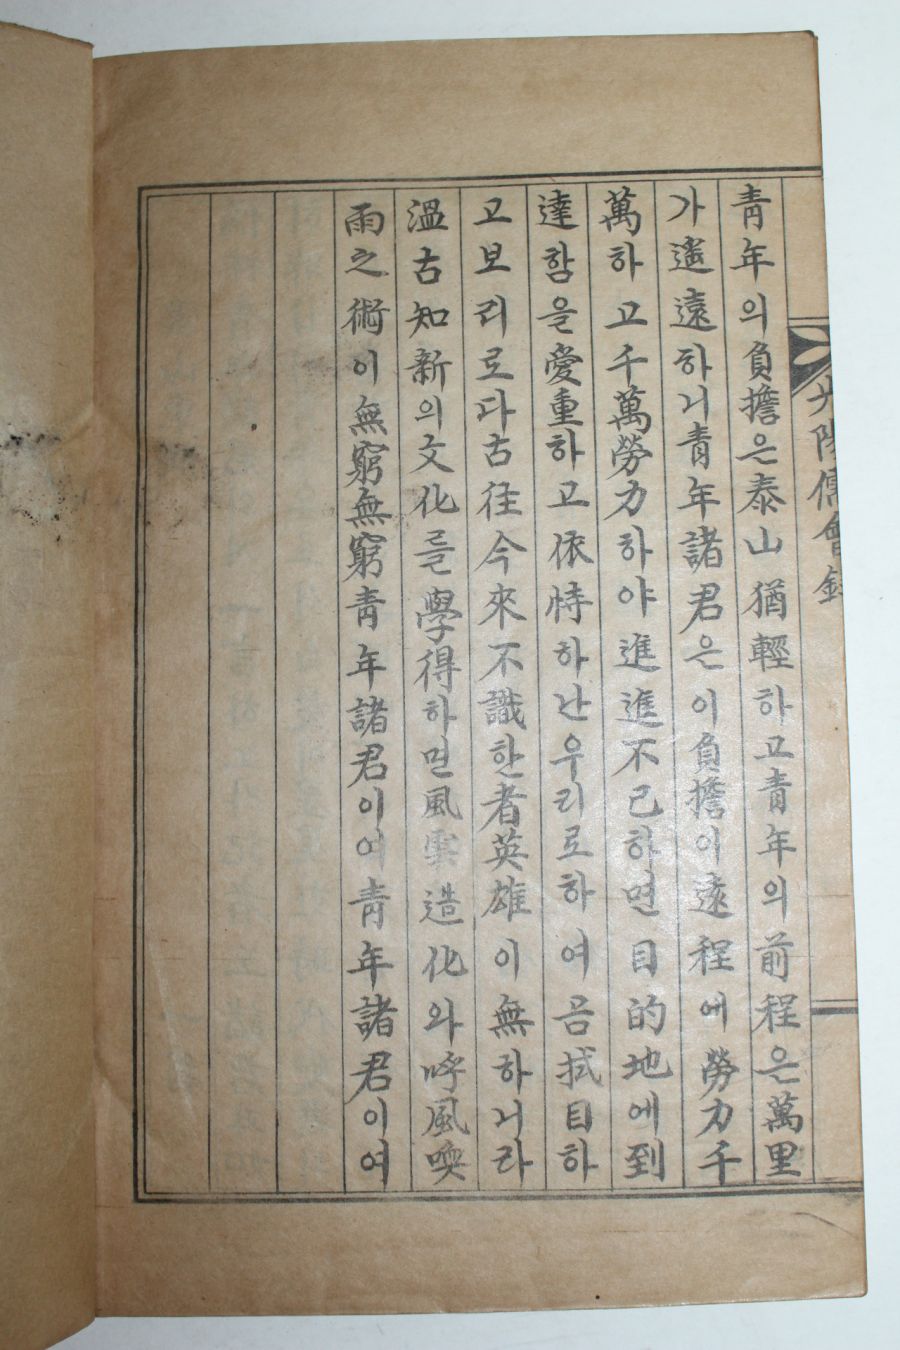 青年의負擔은泰山猶輕하고青年의前程은萬里
가遙遠하니青年諸君은이負擔이遠程에勞力千
萬하고千萬勞力하야進進不已하면目的地에到
達함을愛重하고依恃하난우리로하여금拭目하
고보리로다古往今來不識한者英雄이無하니라
溫古知新의文化를學得하면風雲造化와呼風喚
雨之術이無窮無窮青年諸君이여青年諸君이여